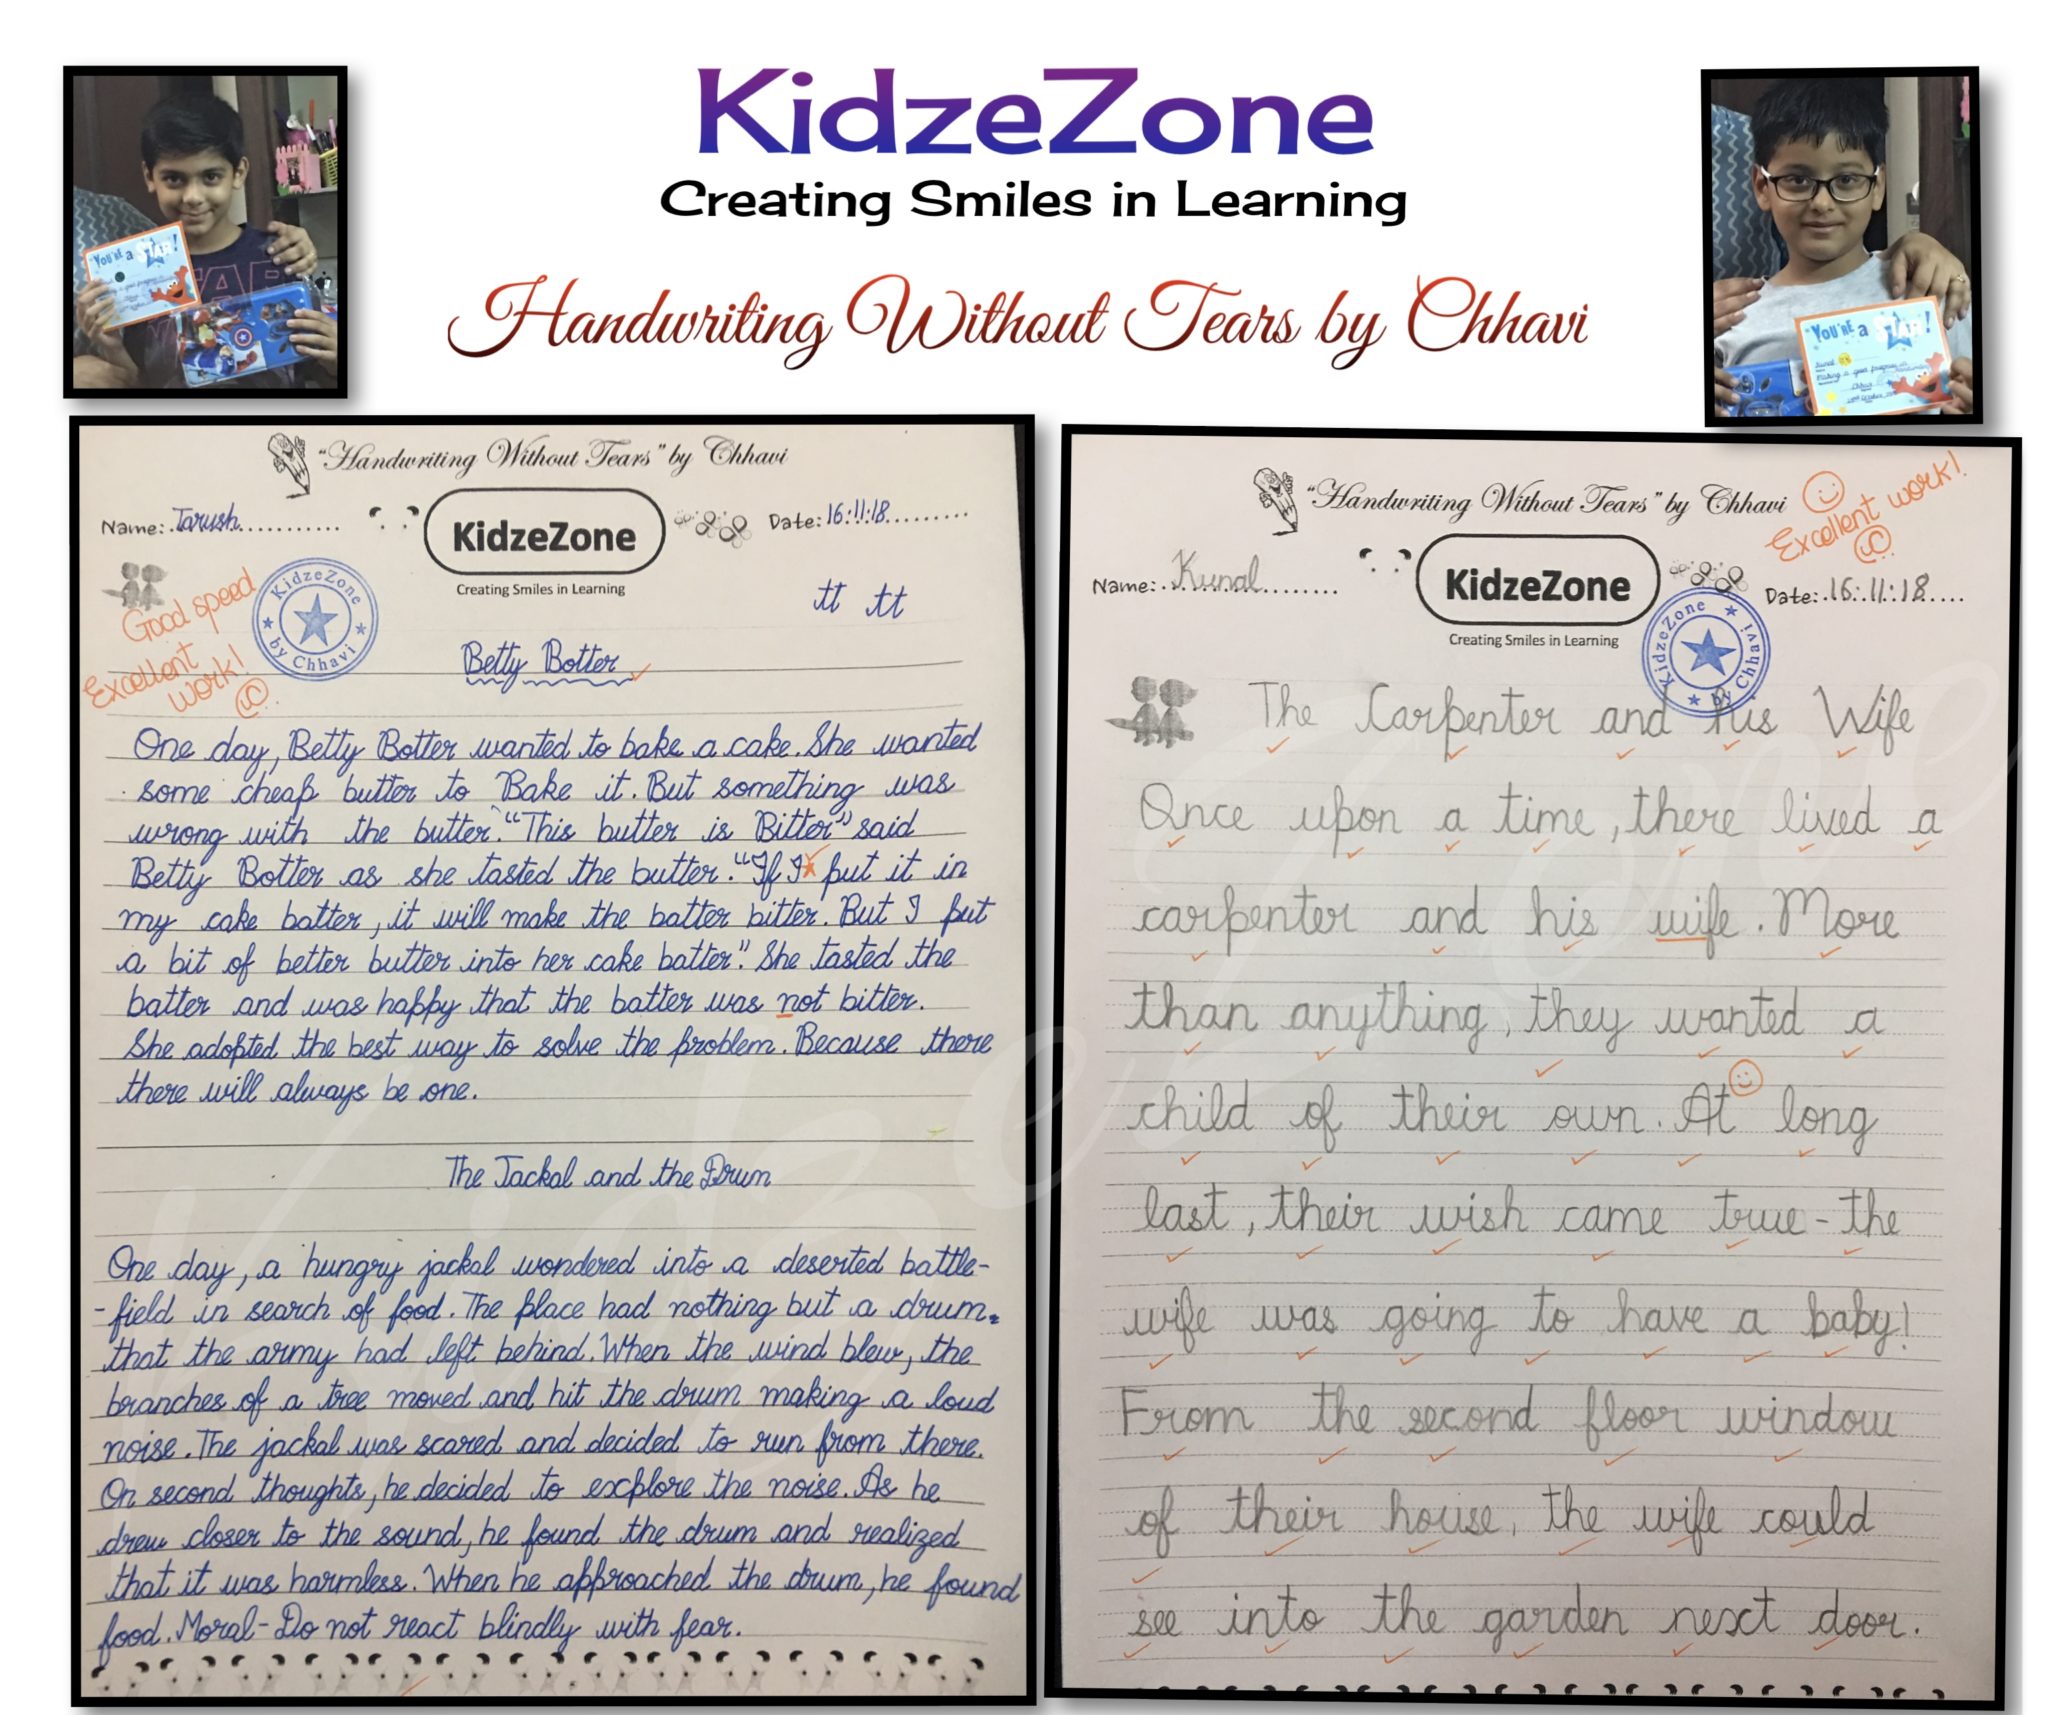 KidzeZone
Creating Smiles in Learning
Handwriting Without Tears by Chhavi
YOU'RE a STAR!
YOU'RE a STAR!
Kunal
Making a good progress in
Chhavi
"Handwriting Without Tears" by Chhavi
Name: Tarush
KidzeZone
Creating Smiles in Learning
Date: 16:11:18
Good speed
Excellent
work!
KidzeZone
by Chhavi
tt tt
Betty Botter
One day, Betty Botter wanted to bake a cake. She wanted
some cheap butter to Bake it. But something was
wrong with the butter. "This butter is Bitter" said
Betty Botter as she tasted the butter. "If I put it in
my cake batter, it will make the batter bitter. But I put
a bit of better butter into her cake batter". She tasted the
batter and was happy that the batter was not bitter.
She adopted the best way to solve the problem. Because there
there will always be one.
The Jackal and the Drum
One day, a hungry jackal wondered into a deserted battle-
-field in search of food. The place had nothing but a drum.
that the army had left behind. When the wind blew, the
branches of a tree moved and hit the drum making a loud
noise. The jackal was scared and decided to run from there.
On second thoughts, he decided to explore the noise. As he
drew closer to the sound, he found the drum and realized
that it was harmless. When he approached the drum, he found
food. Moral-Do not react blindly with fear.
"Handwriting Without Tears" by Chhavi
Excellent work!
Name: Kunal
KidzeZone
Creating Smiles in Learning
Date: 16:11:18
KidzeZone
by Chhavi
The Carpenter and his Wife
Once upon a time, there lived a
carpenter and his wife. More
than anything, they wanted a
child of their own. At long
last, their wish came true - the
wife was going to have a baby!
From the second floor window
of their house, the wife could
see into the garden next door.
KidzeZone